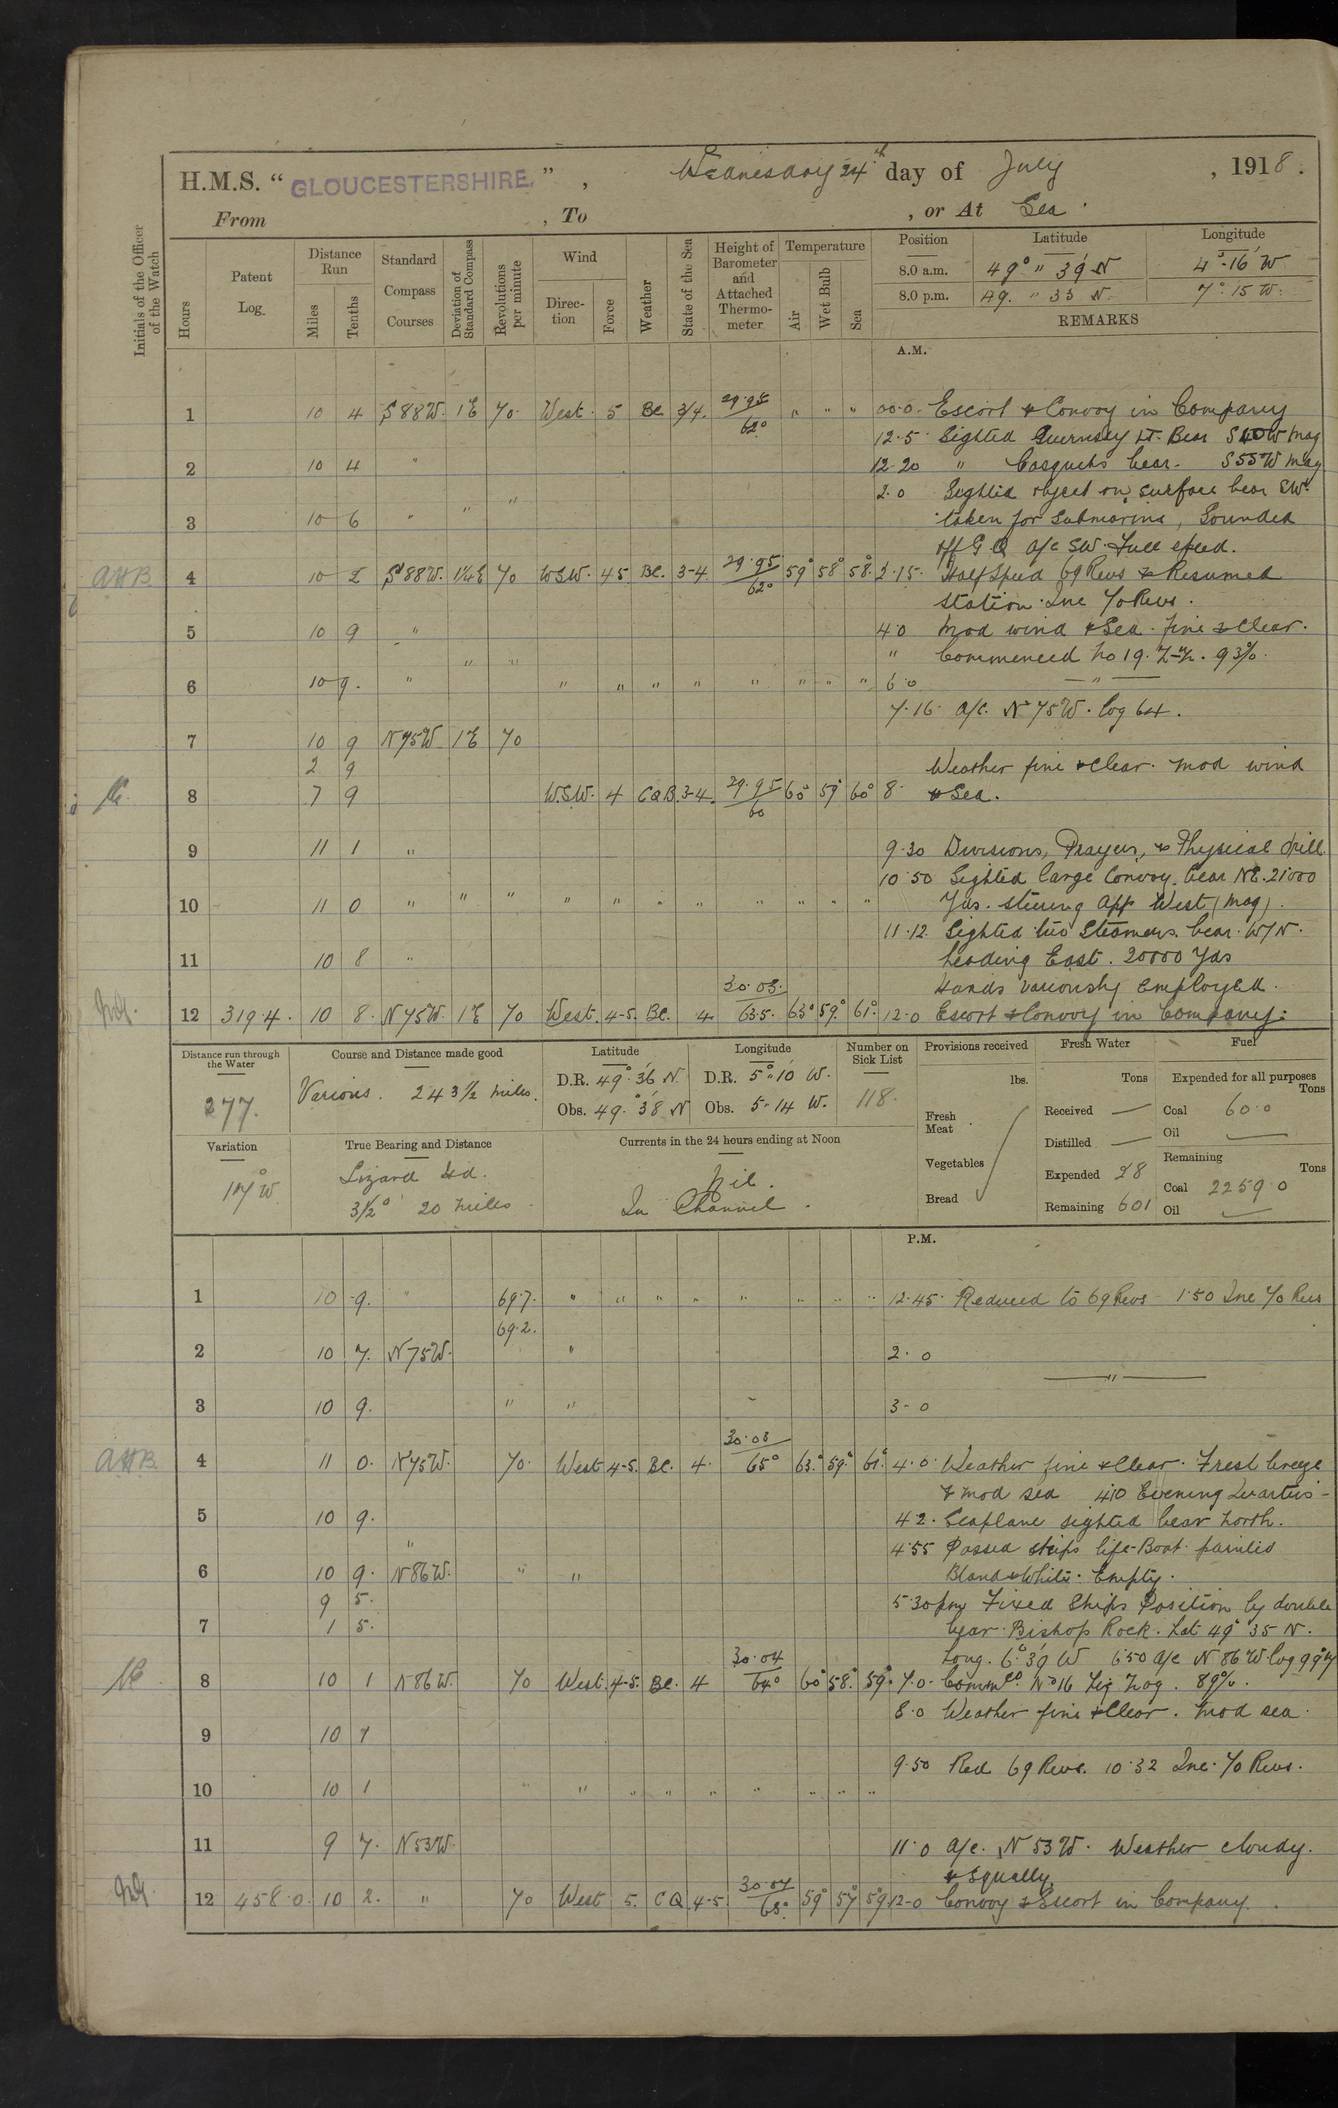 H.M.S. “ GLOUCESTERSHIRE. ” , Wednesday 24th day of July , 1918.
From , To , or At Sea.
Initials of the Officer of the Watch
Hours
Patent Log.
Distance Run
Miles
Tenths
Standard Compass Courses
Deviation of Standard Compass
Revolutions per minute
Wind
Direction
Force
Weather
State of the Sea
Height of Barometer and Attached Thermometer
Temperature
Air
Wet Bulb
Sea
Position Latitude Longitude
8.0 a.m. 49° " 39' N 4°-16' W
8.0 p.m. 49. " 33 N. 7°. 15 W.
REMARKS
A.M.
1 10 4 S 88 W. 1 E 70. West. 5 BC 3/4. 29.95 62° " " " 00.0. Escort & Convoy in Company
12.5 Sighted Guernsey LT. Bear S 40 W mag
2 10 4 " 12.20 " Casquets bear. S 55 W mag
" 2.0 Sighted object on surface bear SW.
3 10 6 " " taken for Submarine, Sounded
off G Q a/c SW. Full speed.
AHB 4 10 2 S 88 W. 1¼ E 70 WSW. 4 5 BC. 3-4 29.95 62° 59° 58° 58. 3.15. Half Speed 69 Revs & Resumed
station. Inc 70 Revs.
5 10 9 " 4.0 Mod wind & Sea. fine & Clear.
" " " Commenced No 19. 93%.
6 10 9. " " " " " " " " " 6.0 "
7.16. a/c. N 75 W. log 64.
7 10 9 N 75 W. 1 E 70
2 9 Weather fine & Clear. Mod wind
8 7 9 W.S.W. 4 C Q B 3-4. 29.95 60 60° 59° 60° 8. & Sea.
9 11 1 " 9.30 Divisions, Prayers, & Physical drill
" " 10.50 Sighted large Convoy. bear NE. 21000
10 11 0 " " " " " " " " " Yds. steering App West (mag).
11.12. Sighted two Steamers. bear. W/N.
11 10 8 " heading East. 20000 Yds
Hands variously Employed.
12 319.4. 10 8. N 75 W. 1 E 70 West. 4-5. BC. 4 30.03. 63.5. 63° 59.° 61° 12.0 Escort & Convoy in Company.
Distance run through the Water
277.
Course and Distance made good
Various. 243½ miles.
Latitude
D.R. 49°. 36' N.
Obs. 49.° 38' N
Longitude
D.R. 5°. 10' W.
Obs. 5-14 W.
Number on Sick List
118.
Provisions received
lbs.
Fresh Meat
Vegetables
Bread
Fresh Water
Tons
Received —
Distilled —
Expended 28
Remaining 601
Fuel
Expended for all purposes
Tons
Coal 60.0
Oil —
Remaining
Tons
Coal 2259.0
Oil —
Variation
17° W.
True Bearing and Distance
Lizard Hd.
3½° 20 miles
Currents in the 24 hours ending at Noon
Nil.
In Channel.
P.M.
1 10 9. " 69.7. " " " " " " " " 12.45. Reduced to 69 Revs 1.50 Inc 70 Revs
69.2.
2 10 7. N 75 W. " 2.0
"
3 10 9. " " 3-0
AHB 4 11 0. N 75 W. 70. West. 4-5. BC. 4. 30.03 65° 63.° 59.° 61.° 4.0. Weather fine & Clear. Fresh breeze
& mod sea 4.10 Evening Quarters-
5 10 9. 4 2. Seaplane sighted bear North.
" 4.55 Passed ships life-Boat. painted
6 10 9. N 86 W. " " White. Empty.
9 5. 5.30pm Fixed Ships Position by double
7 1 5. bear. Bishop Rock. Lat 49° 35 N.
Long. 6.° 39' W 6.50 a/c N 86 W log 99.7
8 10 1 N 86 W. 70 West. 4-5. BC. 4 30.04 64° 60° 58.° 59° 7.0. No 16 Zig Zag. 89%.
8.0 Weather fine & Clear. Mod sea.
9 10 7
9.50 Red 69 Revs. 10.32 Inc. 70 Revs.
10 10 1 " " " " " " " " "
11 9 7. N 53 W. 11.0 a/c. N 53 W. Weather cloudy.
& Squally.
12 458.0. 10 2. " 70 West 5. C Q. 4-5. 30.04 63° 59° 57 59 12-0 Convoy & Escort in Company.